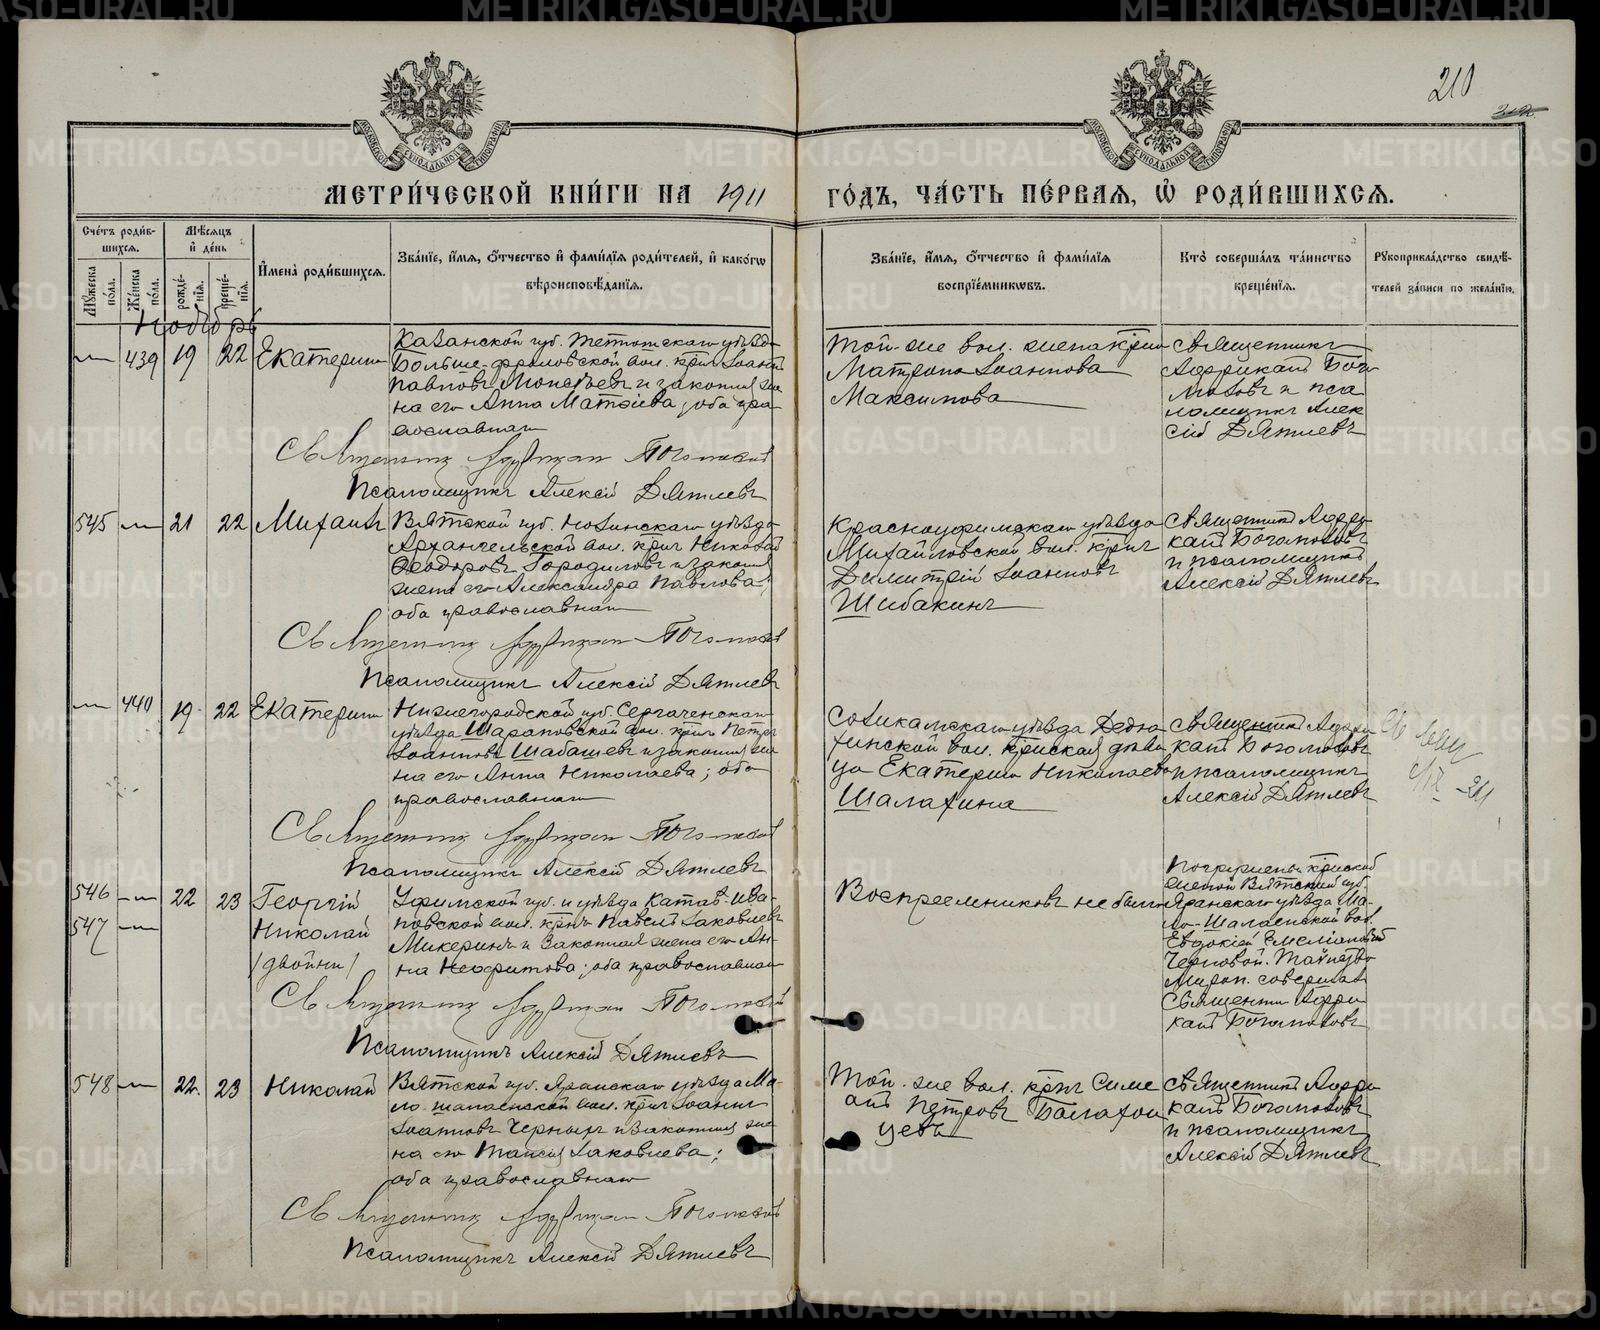 210
МОСКОВСКОЙ СѴНОДАЛЬНОЙ ТИПОГРАФІИ
МОСКОВСКОЙ СѴНОДАЛЬНОЙ ТИПОГРАФІИ
МЕТРИ́ЧЕСКОЙ КНИ́ГИ НА 1911
ГО́ДЪ, ЧА́СТЬ ПЕ́РВАЯ, Ѽ РОДИ́ВШИХСЯ.
Сче́тъ роди́в-
шихся.
Мѣсяцъ
и҆ де́нь
И҆мена̀ роди́вшихся.
Зва́нїе, и҆́мя, ѻ҆́тчество и҆ фами́лїя роди́телей, и҆ како́гѡ
вѣроисповѣ́данїя.
Му́жеска по́ла.
Же́нска по́ла.
рожде́нїя.
креще́нїя.
Зва́нїе, и҆́мя, ѻ҆́тчество и҆ фами́лїя
воспрїе́мникѡвъ.
Кто̀ соверша́лъ та́инство
креще́нїя.
Рꙋкоприкла́дство свидѣ́-
телей за́писи по жела́нїю.
Ноябрь
439 19 22 Екатерина
Казанской губ. Тетюшскаго уѣзда
Больше-Фроловской вол. крнъ Іоаннъ
Павловъ и законная же
на его Анна Матѳіева; оба пра
вославнаго
Священникъ Африкан Боголюбов
Псаломщикъ Алексій Дятлевъ
Той-же вол. жена крна
Матрона Іоаннова
Максимова
Священникъ
Африканъ Бого
любовъ и пса
ломщикъ Алек
сій Дятлевъ
545 21 22 Михаилъ
Вятской губ. Нолинскаго уѣзда
Архангельской вол. крнъ Николай
Ѳеодоровъ Городиловъ и закон
жена его Александра Павлова;
оба православнаго
Священникъ Африкан Боголюбов
Псаломщикъ Алексій Дятлевъ
Красноуфимскаго уѣзда
Михайловской вол. крнъ
Димитрій Іоанновъ
Шибакинъ
Священникъ Афри
канъ Боголюбовъ
и псаломщикъ
Алексій Дятлевъ
440 19 22 Екатерина
Нижегородской губ. Сергаченскаго
уѣзда Шараповской вол. крнъ Петръ
Іоанновъ Шабашевъ и законная же
на его Анна Николаева; оба
православнаго
Священникъ Африкан Боголюбов
Псаломщикъ Алексій Дятлевъ
Соликамскаго уѣзда Дедю
хинской вол. крнская дѣви
ца Екатерина Николаева
Шалахина
Священникъ Афри
канъ Боголюбовъ
и псаломщикъ
Алексій Дятлевъ
546 22 23 Георгій
547 Николай
/двойни/
Уфимской губ. и уѣзда Катав-Ива-
новской вол. крнъ Павелъ Іаковлевъ
Микеринъ и законная жена его Ан-
на Неофитова; оба православнаго
Священникъ Африкан Боголюбов
Псаломщикъ Алексій Дятлевъ
Воспреемниковъ не было
Погружены крнской
женой Вятской губ.
Яранскаго уѣзда Ма-
ло-Шалаевской вол.
Евдокіей Емеліановой
Черновой. Таинство
Мироп. совершал
Священник Афри
канъ Боголюбовъ
548 22 23 Николай
Вятской губ. Яранскаго уѣзда Ма-
ло-шалаевской вол. крнъ Іоаннъ
Іоанновъ Черныхъ и законная же
на его Таисія Іаковлева;
оба православнаго
Священникъ Африкан Боголюбов
Псаломщикъ Алексій Дятлевъ
Той-же вол. крнъ Симе
онъ Петровъ Балахон
цевъ
Священникъ Афри
канъ Боголюбовъ
и псаломщикъ
Алексій Дятлевъ
METRIKI.GASO-URAL.RU